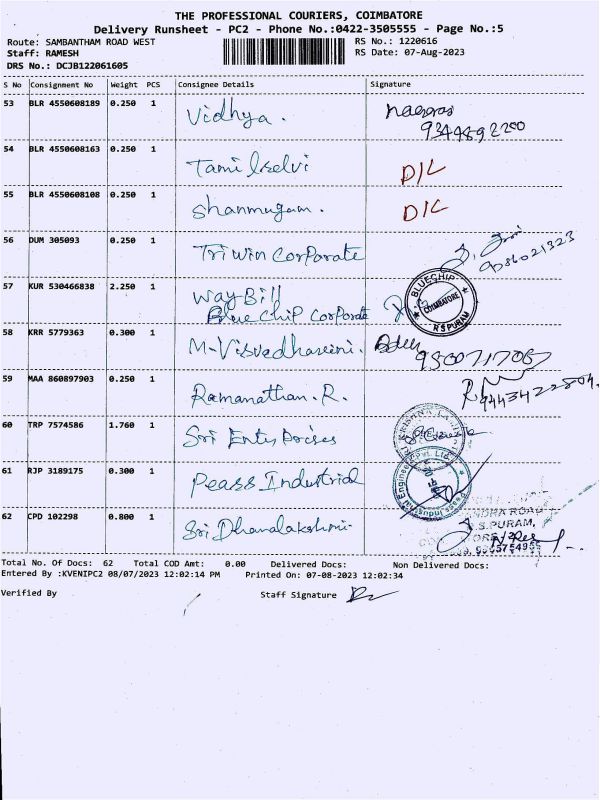 THE PROFESSIONAL COURIERS, COIMBATORE
Delivery Runsheet - PC2 - Phone No.:0422-3505555 - Page No.:5
Route: SAMBANTHAM ROAD WEST RS No.: 1220616
Staff: RAMESH RS Date: 07-Aug-2023
DRS No.: DCJB122061605
S No Consignment No Weight PCS Consignee Details Signature
53 BLR 4550608189 0.250 1 Vidhya.
9344892200
54 BLR 4550608163 0.250 1 Tamilselvi D/L
55 BLR 4550608108 0.250 1 Shanmugam. D/L
56 DUM 305093 0.250 1 Triwin Corporate
9086021323
57 KUR 530466838 2.250 1 Way Bill
Blue Chip Corporate
BLUECHIP COIMBATORE R S PURAM
58 KRR 5779363 0.300 1 M-Visvedhareini.
59 MAA 860897903 0.250 1 Ramanathan. R.
9443422804
60 TRP 7574586 1.760 1 Sri Enterprises
61 RJP 3189175 0.300 1 Peass Industrial
62 CPD 102298 0.800 1 Sri Dhanalakshmi.
S.PURAM,
Total No. Of Docs: 62 Total COD Amt: 0.00 Delivered Docs: Non Delivered Docs:
Entered By :KVENIPC2 08/07/2023 12:02:14 PM Printed On: 07-08-2023 12:02:34
Verified By Staff Signature